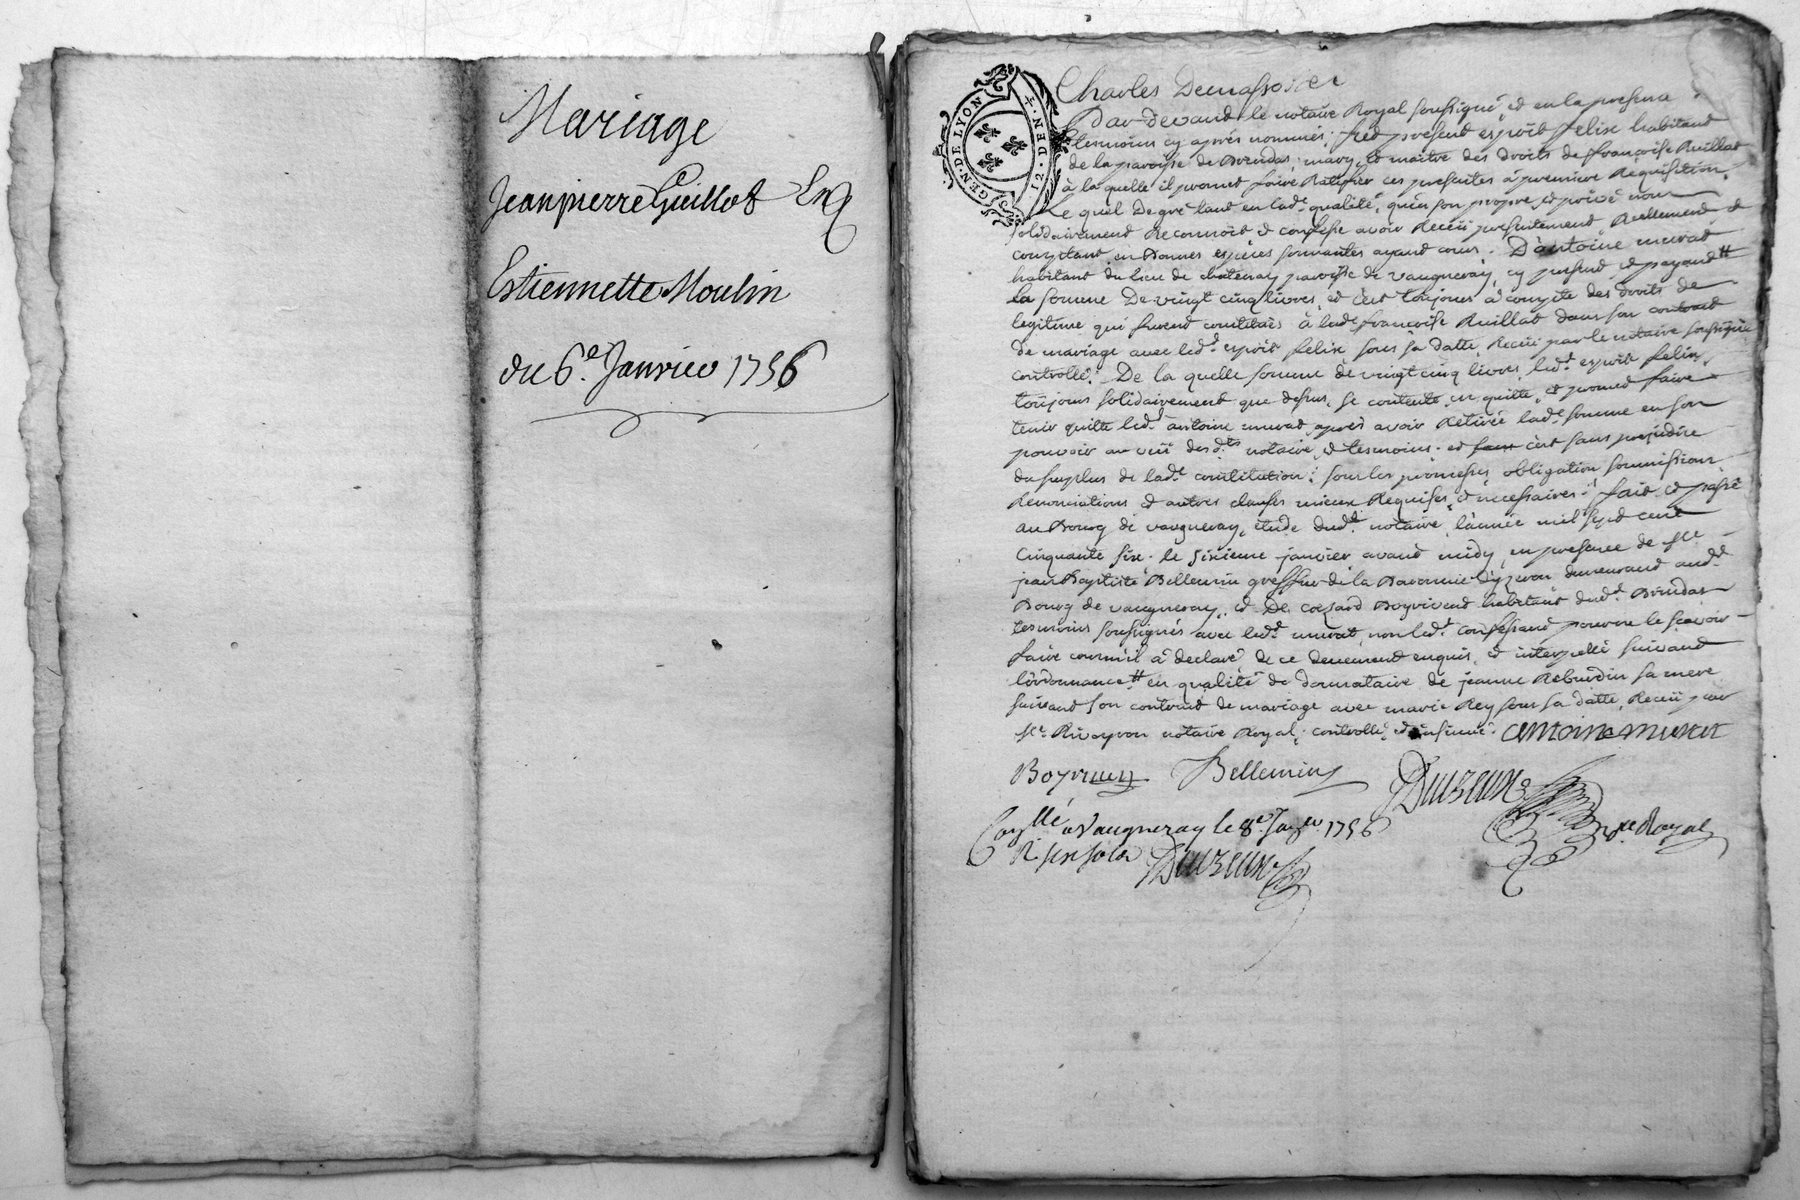 Mariage
Jeanpierre Guillot Et
Estiennette Moulin
du 6e. Janvier 1756
GEN. DE LYON
12 DEN
Charles
Par-devant le notaire Royal soussigné, et en la presence
tesmoins cy après nommés, fut present esprit felix habitant
de la paroisse de Brindas, mary, et maitre des droits de françoise Ruillat
à la quelle il promet faire Ratifier ces presentes à premiere Requisition,
Le quel de gré tant en lade. qualité, qu'en son propre, et privé nom
solidairement Reconnoit et confesse avoir Receü presentement, Réellement et
comptant en bonnes espèces sonnantes ayant cours. D'antoine murat
habitant du lieu de chatenay paroisse de vaugneray, cy present et payant #
la somme De vingt cinq livres, et c'est toujours à compte des droits de
legitime qui furent constitués à lade françoise Ruillat dans son contract
de mariage avec led. esprit felix, sous sa datte, Receü par le notaire soussigné
controllé: De la quelle somme de vingt cinq livres, led. esprit felix,
toüjours solidairement que dessus, se contente, en quitte, et promet faire
tenir quitte led. antoine murat, après avoir Retirée lade. somme en son
pouvoir au veü desd.ts notaire, et tesmoins. et c'est sans prejudice
du surplus de lade. constitution: sous les promesses, obligation, soumissions
Renonciations et autres clauses mieux Requises, et necessaires. fait et passé
au Bourg de vaugneray, étude dud. notaire, l'année mil sept cent
Cinquante six. le sixieme janvier avant midy, en presence de sr.
jean Baptiste Bellemin greffier de la Baronnie d'yzeron demeurant aud.
Bourg de vaugneray, et De Boyrivent habitant dud. Brindas
tesmoins soussignés avec led. murat, non led. confessant pour ne le sçavoir
faire comm'il a declaré de ce deuement enquis, et interpellé suivant
l'ordonnance. # en qualité de donnataire de jeanne Reburdin sa mere
suivant son contract de mariage avec marie Rey sous sa datte, Receü par
sr. notaire Royal, controllé, et insinué. antoine murat
Boyrivent Bellemin
Duzeux nre Royal
Conllé a Vaugneray le 8e Janer 1756
R. six sols Duzeux